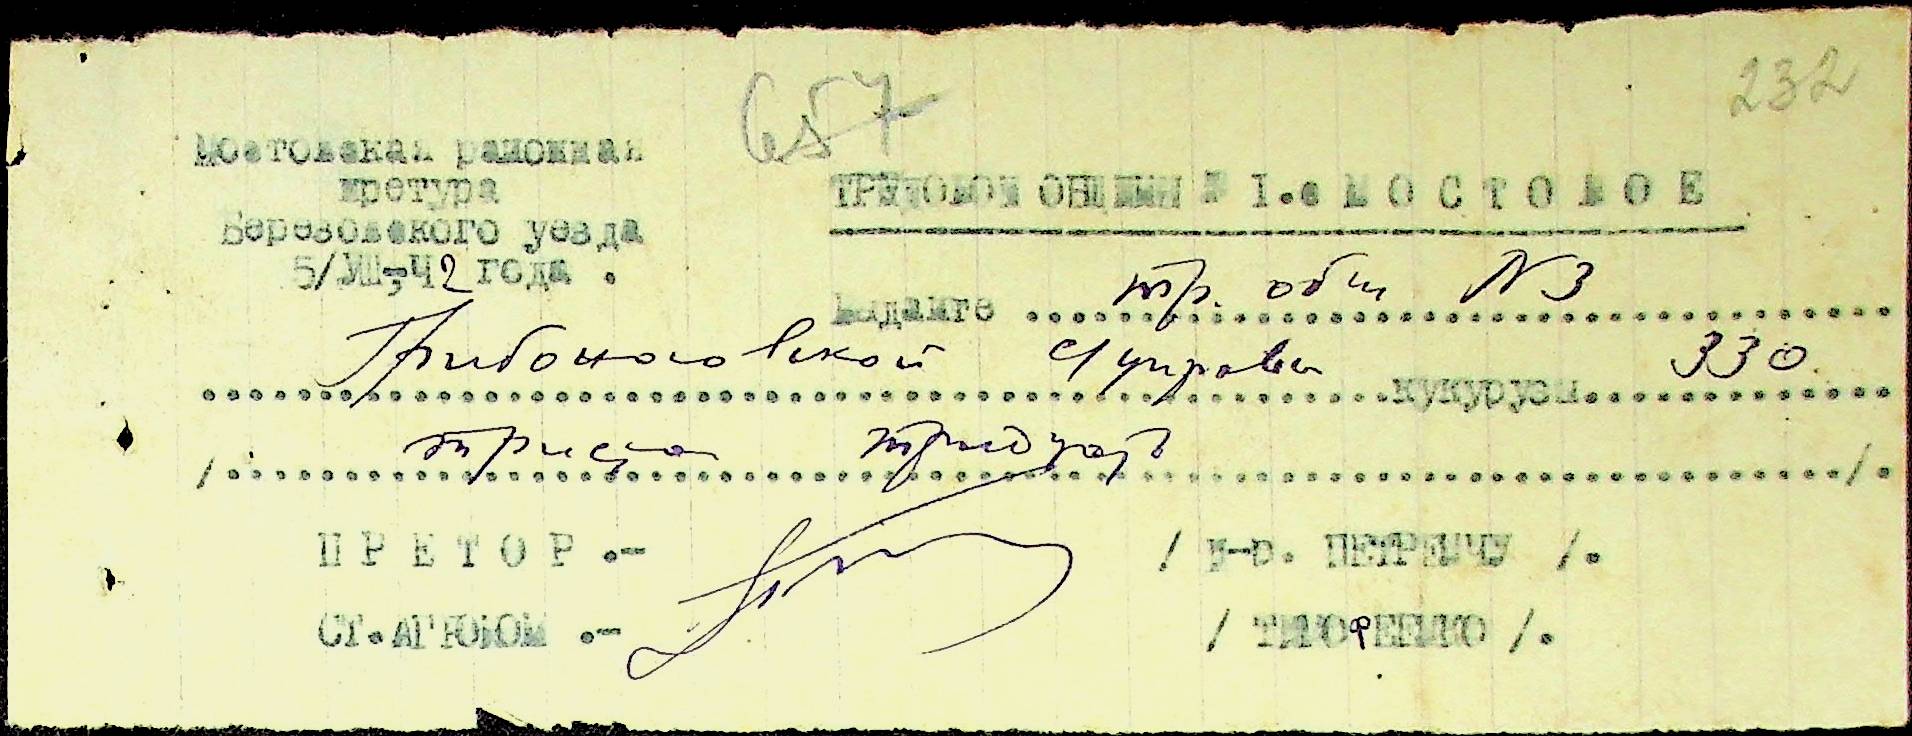 657
232
Мостовская районная
претура
Березовского уезда
5/УШ-42 года .
ТРУДОВОЙ ОБЩИНЫ № I.с М О С Т О В О Е
Выдайте тр. общ N3
Грибоносовской управы кукурузы 330
/ триста тридцать /.
П Р Е Т О Р .- / д-р. ПЕТРЕЧУ /.
СТ.АГРОНОМ .- / ТИМОФЕЕНКО /.